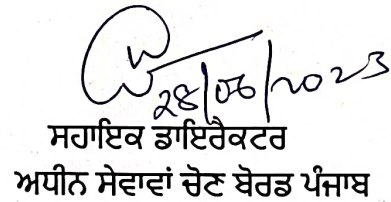 28/06/2023
ਸਹਾਇਕ ਡਾਇਰੈਕਟਰ
ਅਧੀਨ ਸੇਵਾਵਾਂ ਚੋਣ ਬੋਰਡ ਪੰਜਾਬ